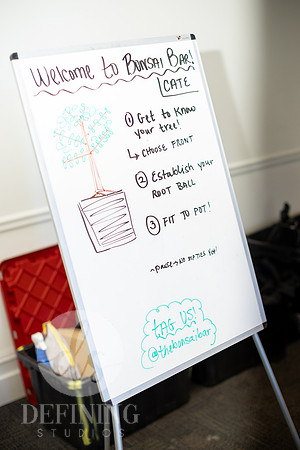 Welcome to Bonsai Bar!
CATE
① Get to Know
your tree!
↳ CHOOSE FRONT
② Establish your
ROOT BALL
③ FIT TO POT!
TAG US!
@thebonsaibar
DEFINING
STUDIOS